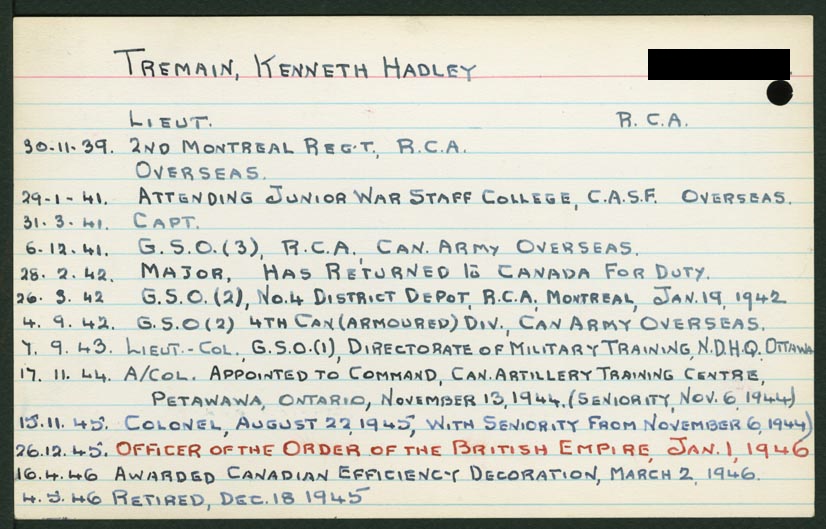 TREMAIN, KENNETH HADLEY
LIEUT. R.C.A.
30-11-39. 2ND MONTREAL REG'T, R.C.A.
OVERSEAS.
29-1-41. ATTENDING JUNIOR WAR STAFF COLLEGE, C.A.S.F. OVERSEAS.
31.3.41. CAPT.
6.12.41. G.S.O.(3), R.C.A., CAN. ARMY OVERSEAS.
28.2.42. MAJOR, HAS RETURNED TO CANADA FOR DUTY.
26.3.42 G.S.O.(2), No.4 DISTRICT DEPOT, R.C.A., MONTREAL, JAN.19, 1942
4.9.42. G.S.O(2) 4TH CAN(ARMOURED) DIV., CAN ARMY OVERSEAS.
7.9.43. LIEUT.-COL., G.S.O.(1), DIRECTORATE OF MILITARY TRAINING, N.D.H.Q. OTTAWA
17.11.44. A/COL. APPOINTED TO COMMAND, CAN. ARTILLERY TRAINING CENTRE,
PETAWAWA, ONTARIO, NOVEMBER 13, 1944. (SENIORITY, NOV. 6, 1944)
15.11.45. COLONEL, AUGUST 22, 1945, WITH SENIORITY FROM NOVEMBER 6, 1944)
26.12.45. OFFICER OF THE ORDER OF THE BRITISH EMPIRE, JAN. 1, 1946
16.4.46 AWARDED CANADIAN EFFICIENCY DECORATION, MARCH 2, 1946.
4.5.46 RETIRED, DEC. 18 1945